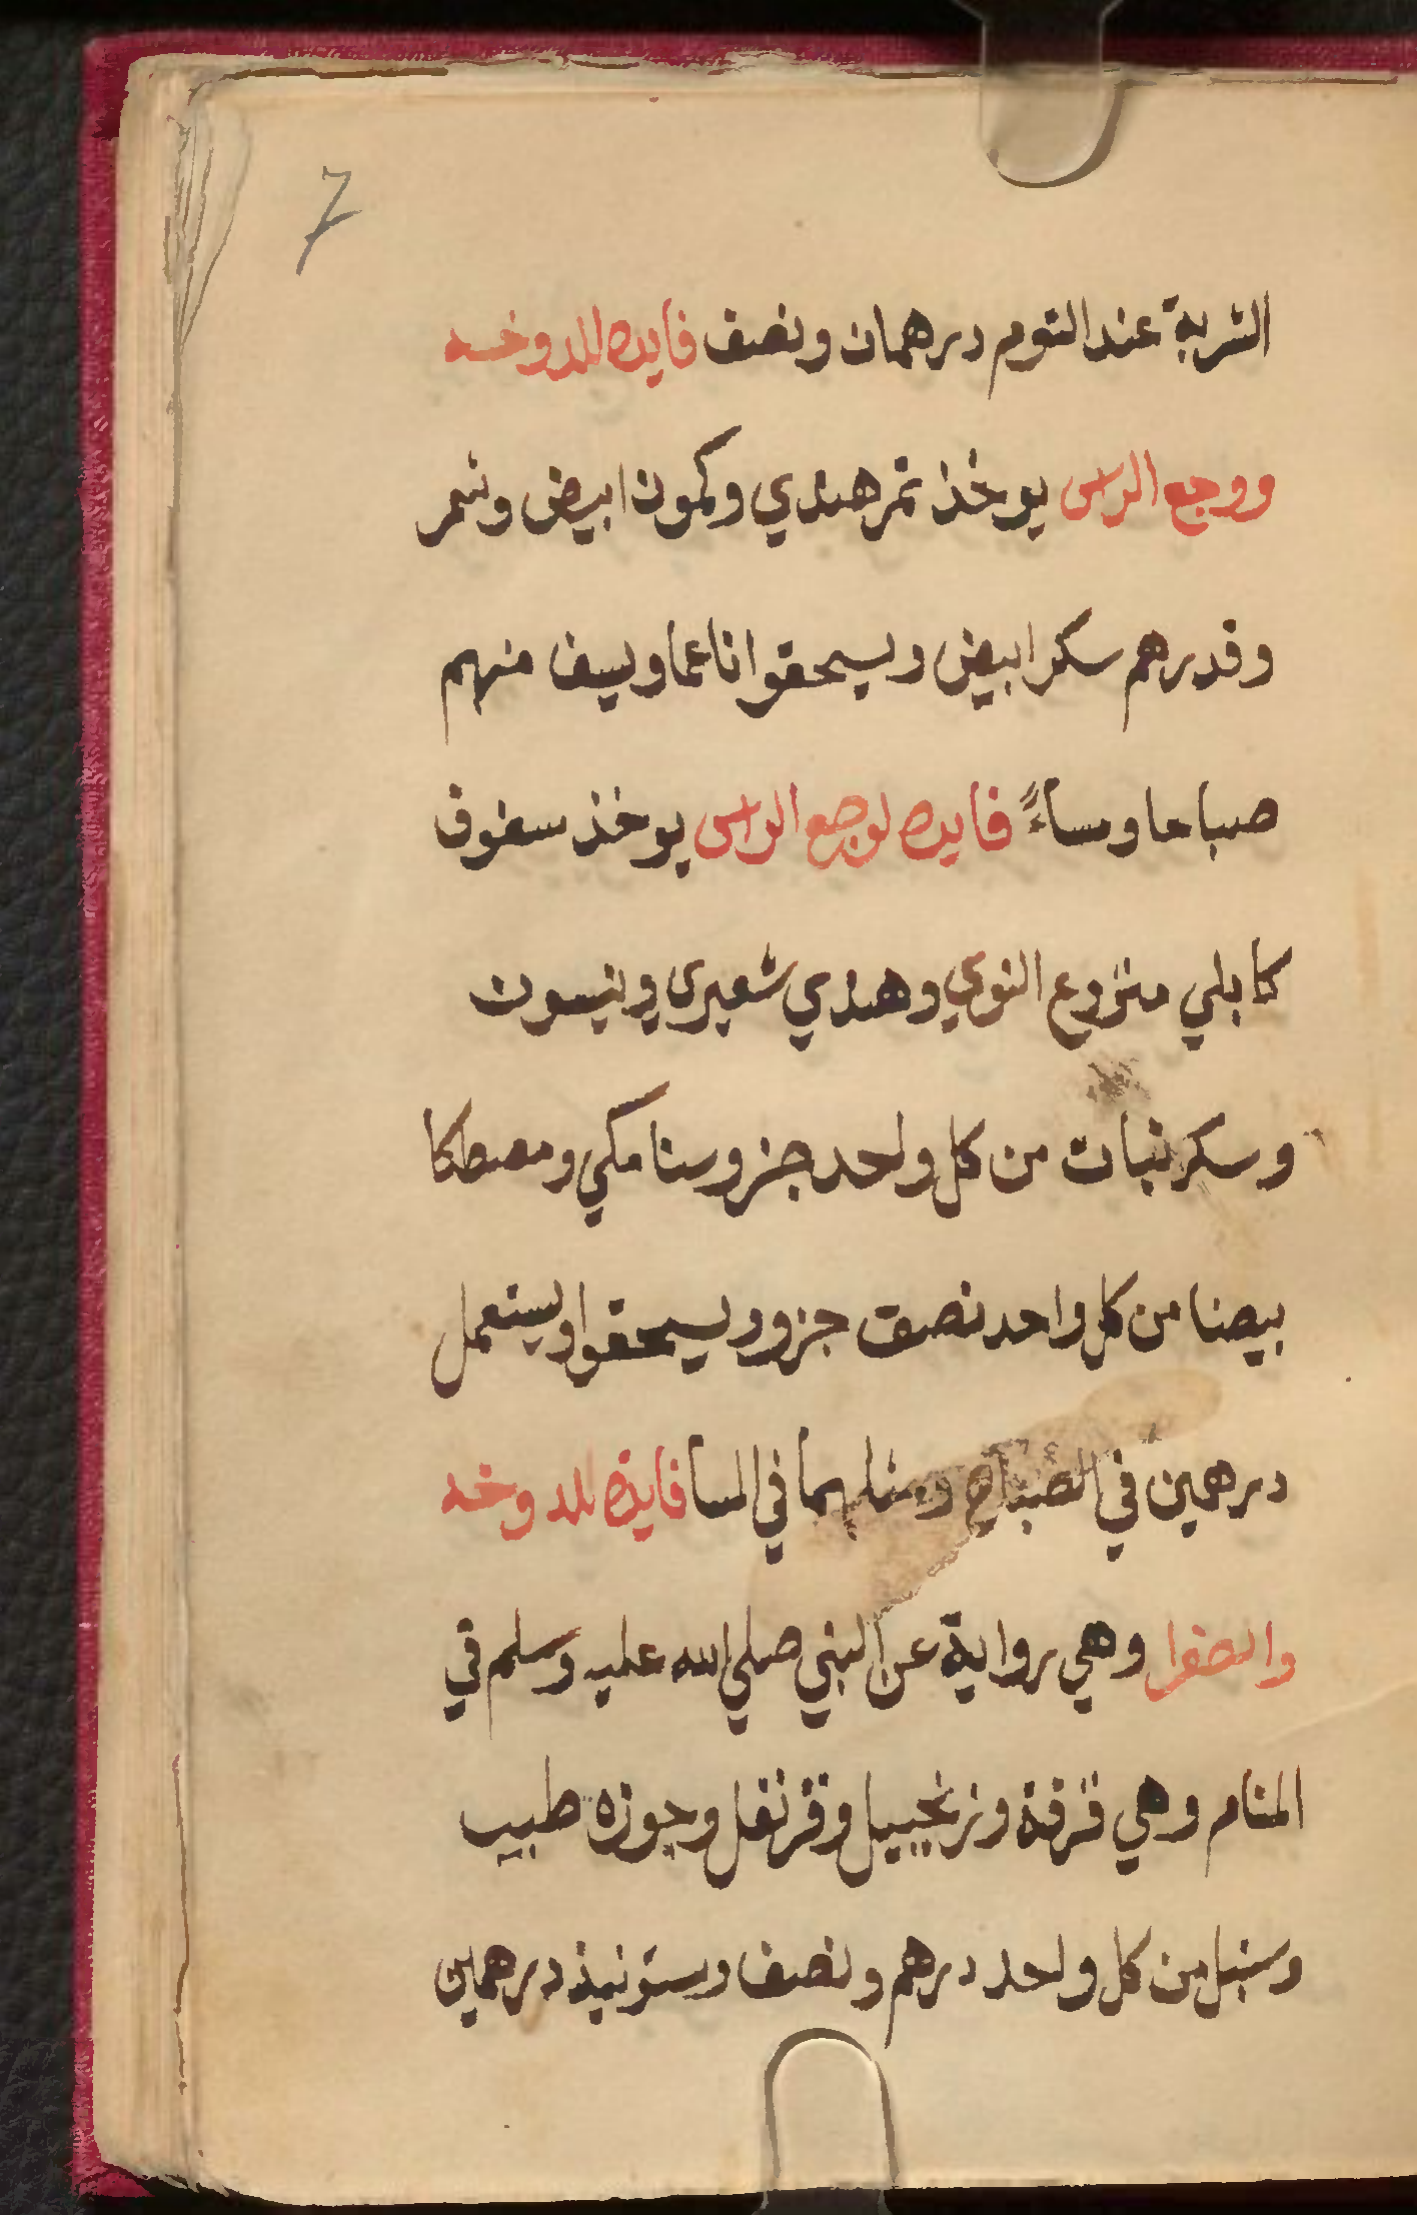 7
الشربة عند النوم درهمان ونصف فايده للدوخه
ووجع الراس يوخذ تمر هندي وكمون ابيض وشمر
وقدرهم سكر ابيض ويسحقوا ناعما ويسف منهم
صباحا ومساءً فايده لوجع الراس يوخذ سفوف
كابلي منزوع النوي وهندي شعيري وينسون
وسكر نبات من كل واحد جزو وسنا مكي ومصطكا
بيضا من كل واحد نصف جزو ويسحقوا ويستعمل
درهمين في الصباح ومثلهما في المسا فايدة للدوخه
والصفرا وهي رواية عن النبي صلي الله عليه وسلم في
المنام وهي قرفة وزنجبيل وقرنفل وجوزه طيب
وسنبل من كل واحد درهم ونصف وستونيذ درهمين